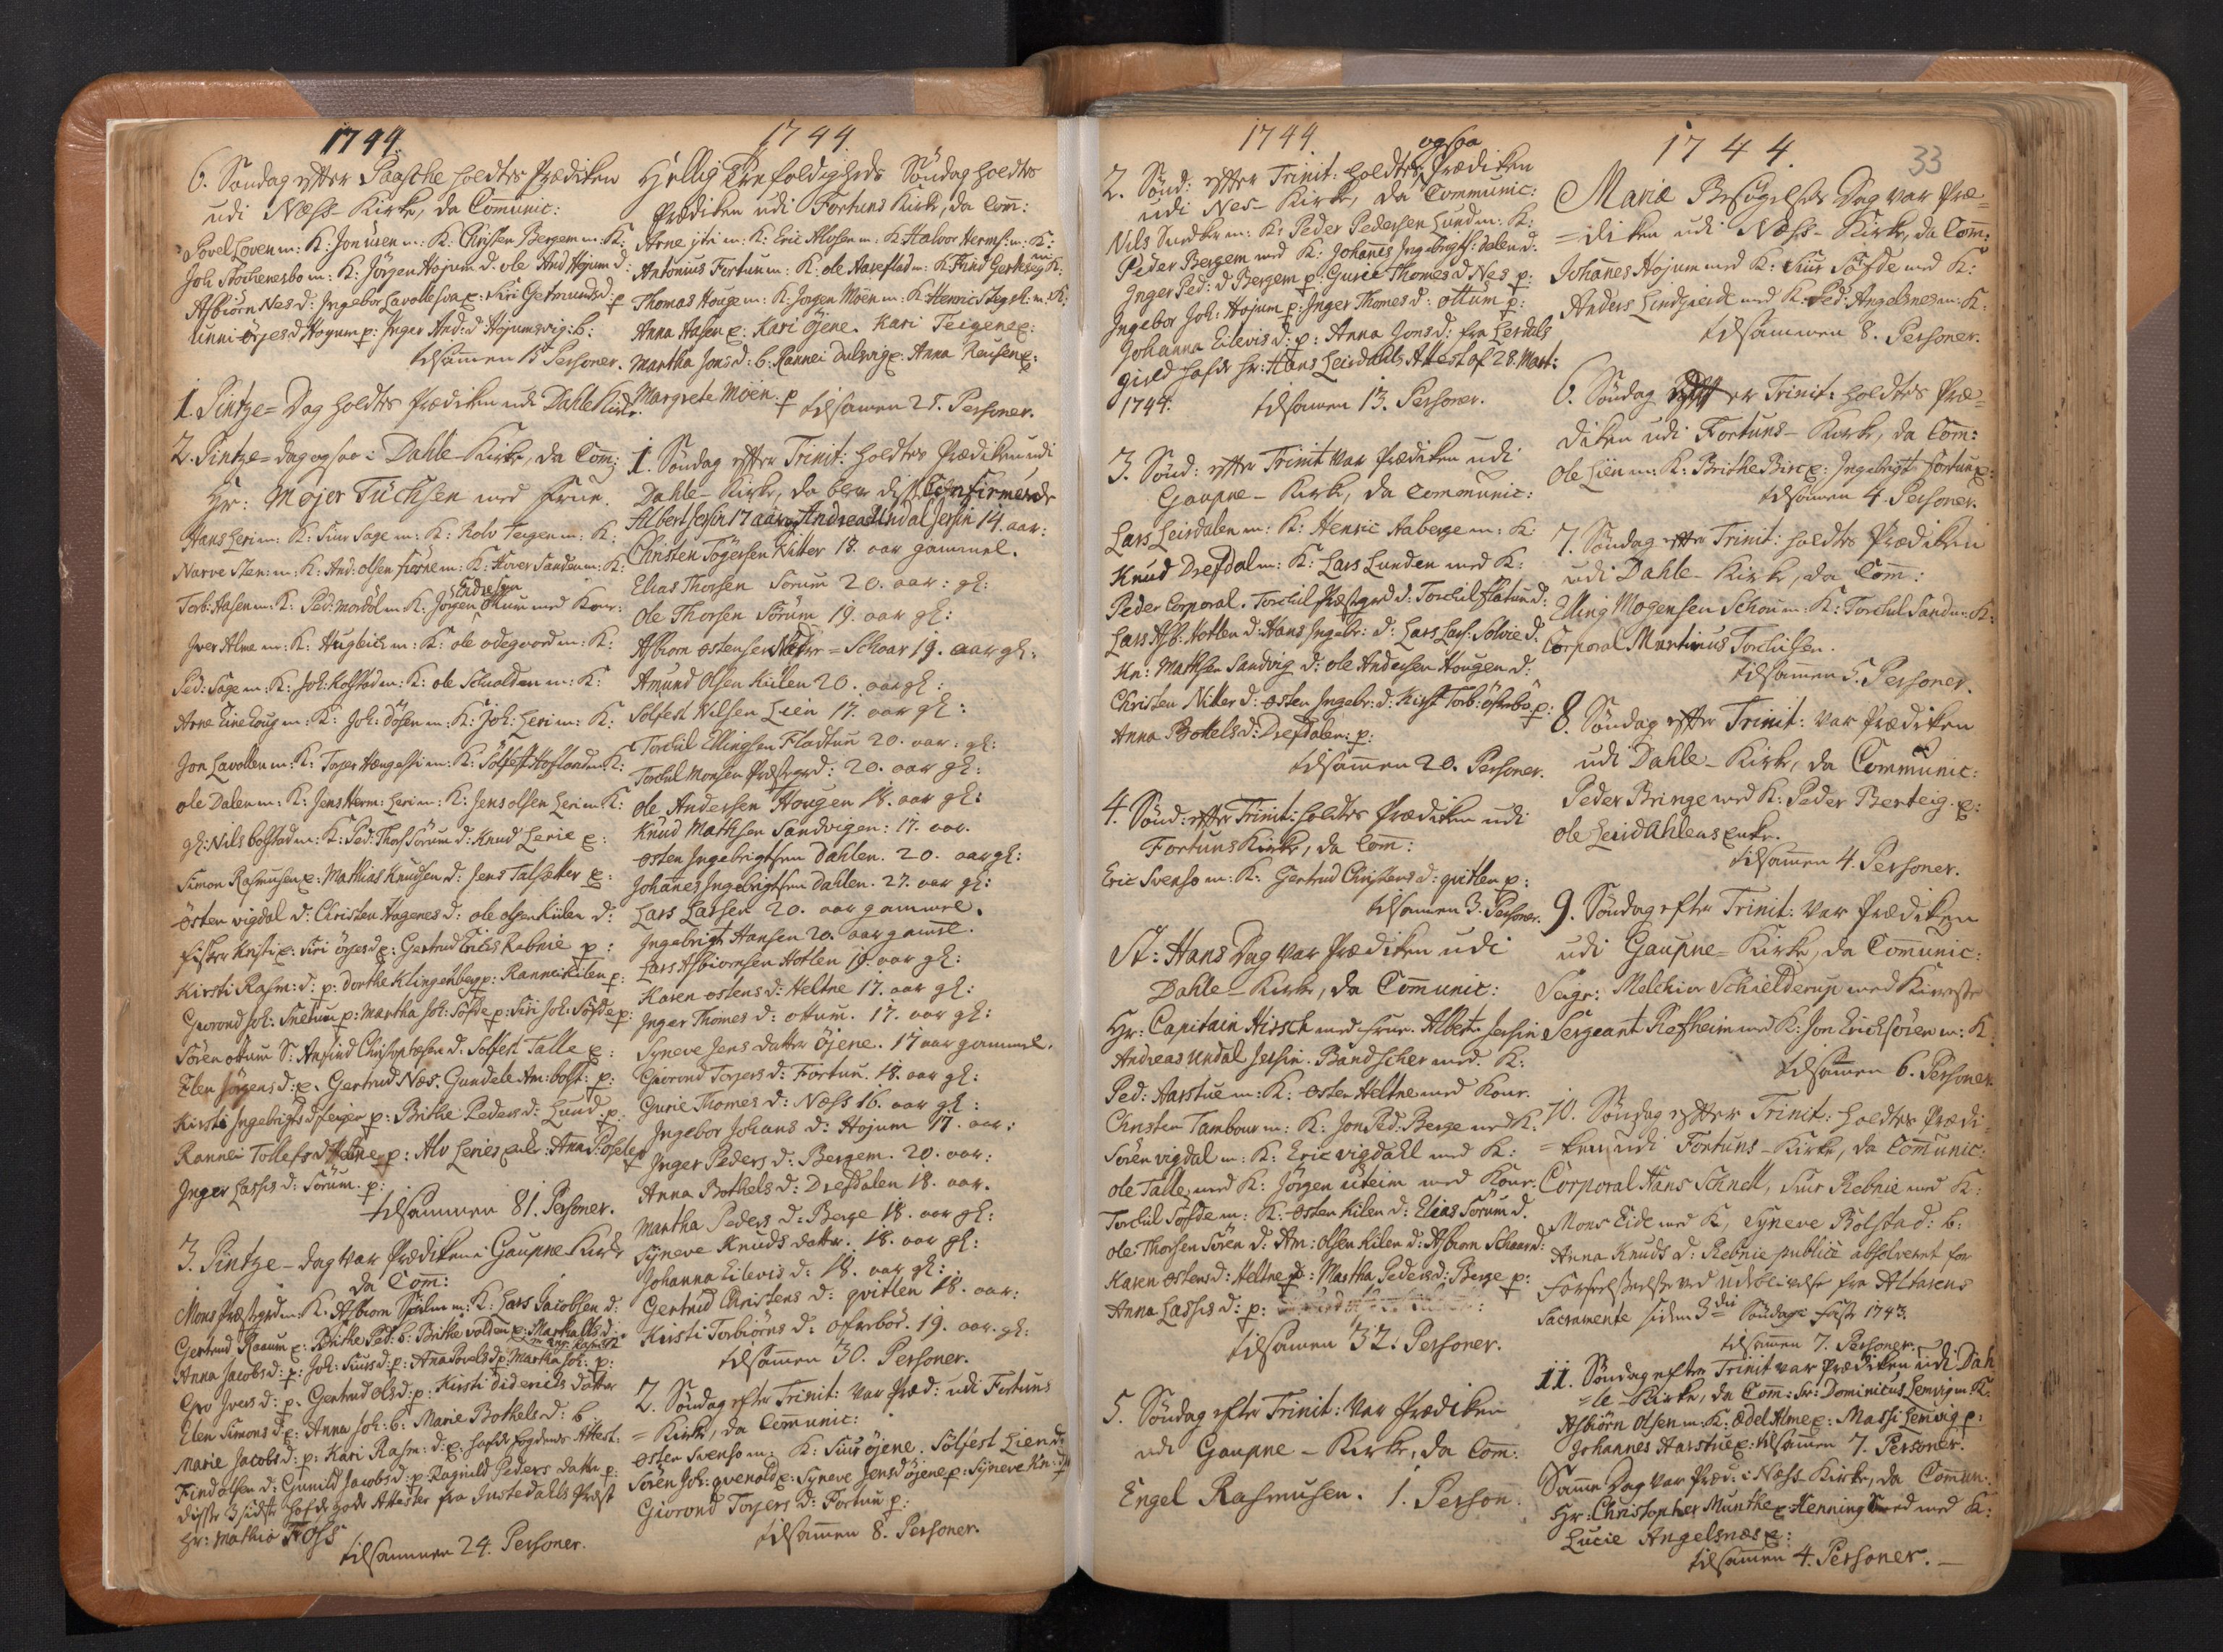 1744.
6. Søndag efter Paasche holdtes Prædiken
udi Næss-Kirke, da Comunic:
Povel Loven m: K: Jon uren m: K: Christen Bergem m: K:
Joh: Stochenesbo m: K: Jörgen Hojum d. ole And Hojum d:
Asbiörn Nes d: Ingebor Lavollesva e: Siri Getmunds d: p
unni örjes d Hojum p: Inger And: d Hojumsvig: b:
tilsamen 15 Personer.
1. Pintze=Dag holdtes Prædiken udi Dahle Kirke.
2. Pintze=dag ogsaa i Dahle-Kirke, da Com:
Hr: Major Tüchsen med Frue.
Hans Leri m: K: Siur Sage m: K: Rolv Teigen m: K:
Narve Sten: m: K: And: olsen fiörne m: K: Siover Sanden m: K:
Eidresem
Torb: Hasen m: K: Ped: Mordöl m: K: Jörgen Ottum med Kone:
Iver Alme m: K: Hugleik m: K: ole ödegaard m: K:
Ped: Sage m: K: Joh: Kolstad m: K: ole Scholden m: K:
Arne Einehoug m: K: Joh: Dösen m: K: Joh: Leri m: K:
Jon Lavollen m: K: Torger Hængessi m: K: Solfest Hofland m: K:
ole Dalen m: K: Jens Herm: Leri m: K: Jens olsen Leri m K:
gl: Nils bolstad m: K: Ped: Thorsörum d: Knud Lerie e:
Simon Rasmusen e: Mathias Knudsen d: Jens Talsætter e:
östen vigdal d: Christen Hagenes d: ole olsen Kilen d:
Kirsti Rasm: d: p: dorthe Klingenberg p: Rannei Kilen p:
Giorond Joh: Snetun p: Martha Joh: Söfde p: Siri Joh: Söfde p:
Sören ottum S: Anfind Christophersen d. Solfest Talle e:
Elen Jörgens d: e. Gertrud Næs. Gundele Am: bolst: p:
Kirsti Ingebrigts d Teigen p: Brithe Peders d: Lund. p.
Inger Lasses d: Sörum. p:
tilsammen 81. Personer.
3. Pintze-dag var Prædiken i Gaupne Kirke
da Com:
Mons Præstegrd m: K: Asbiorn m: K: Lars Jacobsen d:
Anna Jacobs d: p: Joh: Siurs d: p: Ana Povels d p: Martha Joh: p:
Gro Ivers d: p. Gertrud ols d: p: Kirsti didericks datter
Elen Simons d e: Anna Joh: b: Marie Bothels d: b
Marie Jacobs d: p: Kari Rasm: d: e: hafde Attest.
Find olsen d: Gunild Jacobs d: p. Ragnild Peders datter p:
disse 3 sidste hafde gode Attester fra Justedahls Præst
Hr: Mathia Foss
tilsammen 24. Personer.
1744.
Hellig Trefoldigheds Søndag holdtes
Prædiken udi Fortuns Kirke, da Com:
Arne ytri m: K: Eric Alvsen m: K Halvor Herms: m: K:
Antonius Fortun m: K: ole Aarestad m: K
Thomas Houge m: K: Jorgen Möen m: K Henric m: K:
Anna Hasen e. Kari öjene. Kari Teigen e:
Martha Jons d: b: Rannei Dulsvig e. Anna Neusen e:
Margrete Möen. p tilsamen 25. Personer.
1. Søndag efter Trinit: holdtes Prædiken udi
Dahle-Kirke, da blev disse Confirmerede
Albert Jersin 17 aar og Andreas Undal Jersin 14. aar:
Christen Tögersen Nitter 18. aar gammel.
Elias Thorsen Sorum 20. aar: gl:
Ole Thorsen Sörüm 19. aar gl:
Asbiorn ostensen Schoar 19. aar gl:
Amünd Olsen Kiilen 20. aar gl:
Solfest Nilsen Lien 17. aar gl:
Torchil Ellingsen Fladtun 20. aar. gl:
Torchil Monsen Præstgrd: 20. aar gl:
ole Andersen Hougen 18. aar gl:
Knüd Mathsen Sandvigen: 17. aar.
osten Ingebrigtsen Dahlen. 20. aar gl:
Johanes Ingebrigtsen Dahlen. 27. aar gl:
Lars Larsen 20. aar gammel.
Ingebrigt Hansen 20. aar gamel.
Lars Asbiornsen Hotlen 18. aar gl:
Karen ostens d: Heltne 17. aar gl:
Inger Thomes d: ottum. 17. aar gl:
Syneve Jens datter öjene. 17 aar gammel.
Giorond Torjers d: Fortun. 18. aar gl:
Gurie Thomes d: Næss 16. aar gl:
Ingebor Johans d: Hojum 17. aar:
Inger Peders d: Bergem. 20. aar:
Anna Bothels d: Drefdalen 18. aar.
Martha Peders d: Berge 18. aar gl:
Syneve Knuds datter. 18. aar gl:
Johanna Eilevis d: 18. aar gl:
Gertrud Christens d: qvitlen 18. aar:
Kirsti Torbiörns d: ofrebö. 19. aar. gl:
tilsammen 30. Personer.
2. Søndag efter Trinit: var Præd: udi Fortuns
= Kirke, da Comunic:
osten Svensö m: K: Siur öjene. Sölfest Lien d:
Sören Joh: qvenold e: Syneve Jens d öjene p: Syneve Kn: d p
Giorond Torjers d: Fortun p:
tilsamen 8. Personer.
1744.
ogsaa
2. Sønd: efter Trinit: holdtes Prædiken
udi Nes-Kirke, da Communic:
Nils m: K: Peder Pedersen Lund m: K:
Peder Bergem med K: Johanes Ingebrigts: Dalen d.
Inger Ped: d Bergem p. Gurie Thomes d Nes p:
Ingebor Joh: Hojum p: Inger Thomes d: ottum p:
Johanna Eilevis d: p: Anna Jons d: fra Leirdals
gield hafde Hr: Hans Leirdahls Attest af 28. Mart:
1744. tilsamen 13. Personer.
3. Sønd: efter Trinit var Prædiken udi
Gaupne-Kirke, da Communic:
Lars Leirdalen m: K: Henric Aaberge m: K:
Knud Drefdal m: K: Lars Lunden med K:
Peder Corporal. Torchil Præstgrd d: Torchil Flatun d:
Lars Asb: Hotlen d: Hans Ingebr: d: Lars Lars: Solvie d.
Kn: Mathsen Sandvig d: ole Andersen Hougen d:
Christen Nitter d: osten Ingebr: d: Kirst Torb: öfrebo p:
Anna Bottels d: Drefdalen: p:
tilsammen 20. Personer.
4. Sønd: efter Trinit: holdtes Prædiken udi
Fortuns Kirke, da Com:
Eric Svensö m: K: Gertrud Christens d: qvitlen p:
tilsamen 3. Personer.
St: Hans Dag var Prædiken udi
Dahle-Kirke, da Comunic:
Hr: Capitain Hirsch med frue. Albert Jersin
Andreas Undal Jersin. Bundscher med K:
Ped: Aarstue m: K: osten Heltne med Kone.
Christen Tambour m: K: Jon Ped: Berge med K.
Sören vigdal m: K: Eric vigdahl med K:
ole Talle med K: Jörgen uteim med Kone.
Torchil Sofde m: K: osten Kilen d: Elias Sörum d.
ole Thorsen Sören d: Am: olsen Kilen d: Asbiorn Schoar d:
Karen ostens d: Heltne p: Martha Peders d: Berge p:
Anna Lasses d: p:
tilsamen 32. Personer.
5. Søndag efter Trinit: var Prædiken
udi Gaupne-Kirke, da Com:
Engel Rasmusen. 1. Person.
1744.
33
Mariæ Besøgelses Dag var Præ=
=diken udi Næss-Kirke, da Com:
Johanes Hojum med K: Siur Söfde med K:
Anders Lindgierde med K: Ped: Angelsnes m: K:
tilsammen 8. Personer.
6. Søndag efter Trinit: holdtes Præ=
diken udi Fortuns-Kirke, da Com:
Ole Lien m: K: Brithe Birc e: Ingebrigt Fortun e:
tilsamen 4. Personer.
7. Søndag efter Trinit: holdtes Prædiken
udi Dahle-Kirke, da Com:
Elling Mogensen Schou m: K: Torchil Sand m: K:
Corporal Martinus Torchilsen.
tilsammen 5. Personer.
8. Søndag efter Trinit: var Prædiken
udi Dahle-Kirke, da Communic:
Peder Bringe med K: Peder Berteig e:
ole Leirdahlens enke.
tilsamen 4. Personer.
9. Søndag efter Trinit: var Prædiken
udi Gaupne=Kirke, da Comunic:
Seigr: Melchior Schielderup med Kiereste
Sergeant Refheim med K: Jon Ericksören m: K
tilsamen 6. Personer.
10. Søndag efter Trinit: holdtes Prædi-
=ken udi Fortuns-Kirke, da Comunic:
Corporal Hans Schnell, Siur Rebnie med K:
Mons Eide med K, Syneve Bolstad: b:
Anna Knuds d: Rebnie publicè absolveret for
Forseelse ved udeblivelse fra Altarens
Sacramente siden 3die Søndag i Faste 1743.
tilsamen 7. Personer.
11. Søndag efter Trinit var Prædiken udi Dah
=le-Kirke, da Com: Sr: Dominicus Hemvig m K:
Asbiörn Olsen m: K: Ædel Alme e: Massi Hemvig p:
Johannes Aarstue e: tilsamen 7. Personer.
Samme Dag var Præd: i Næss-Kirke, da Commun:
Hr: Christopher Munthe e: Henning med K:
Lucie Angelsnæs e:
tilsamen 4. Personer.